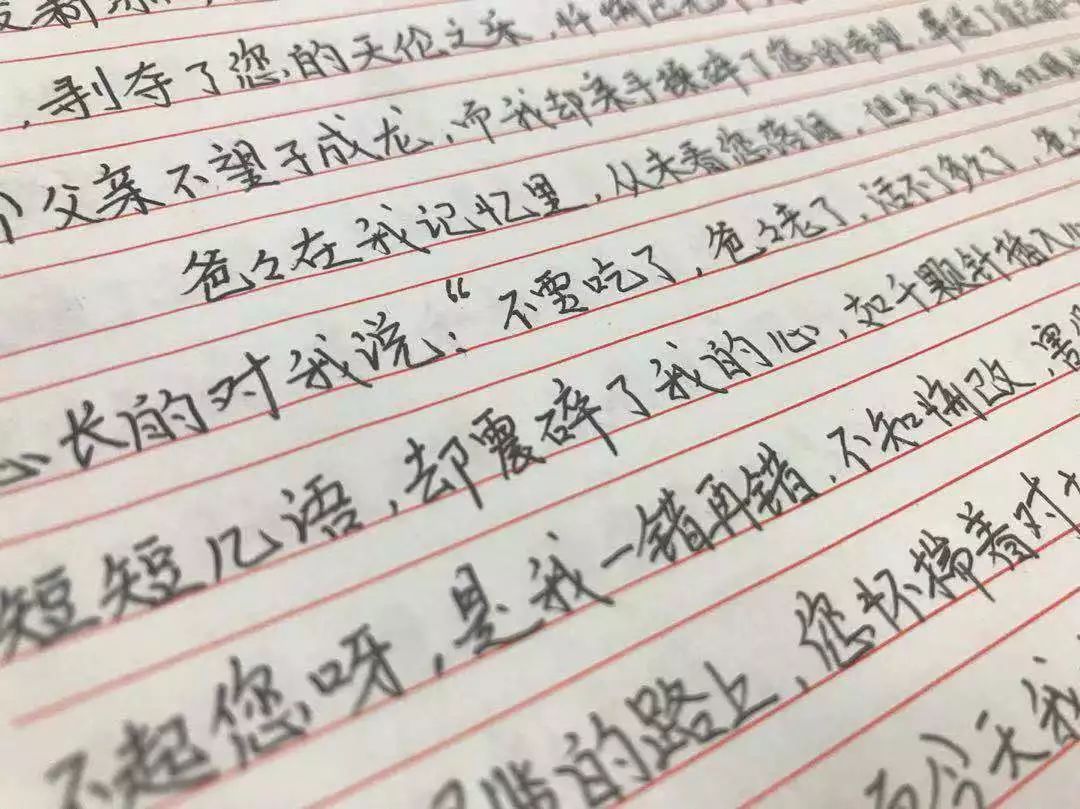 ，剥夺了您的天伦之乐，忏悔已
父亲不望子成龙，而我却亲手摸碎了您的希望，葬送了
爸々在我记忆里，从未看您落泪，但为了我您
心长的对我说：“不要吃了，爸々老了，活不了多久了，爸
短短几语，却震碎了我的心，如千颗针插入心
不起您呀，是我一错再错，不知悔改，害
的路上，您怀揣着对
天我